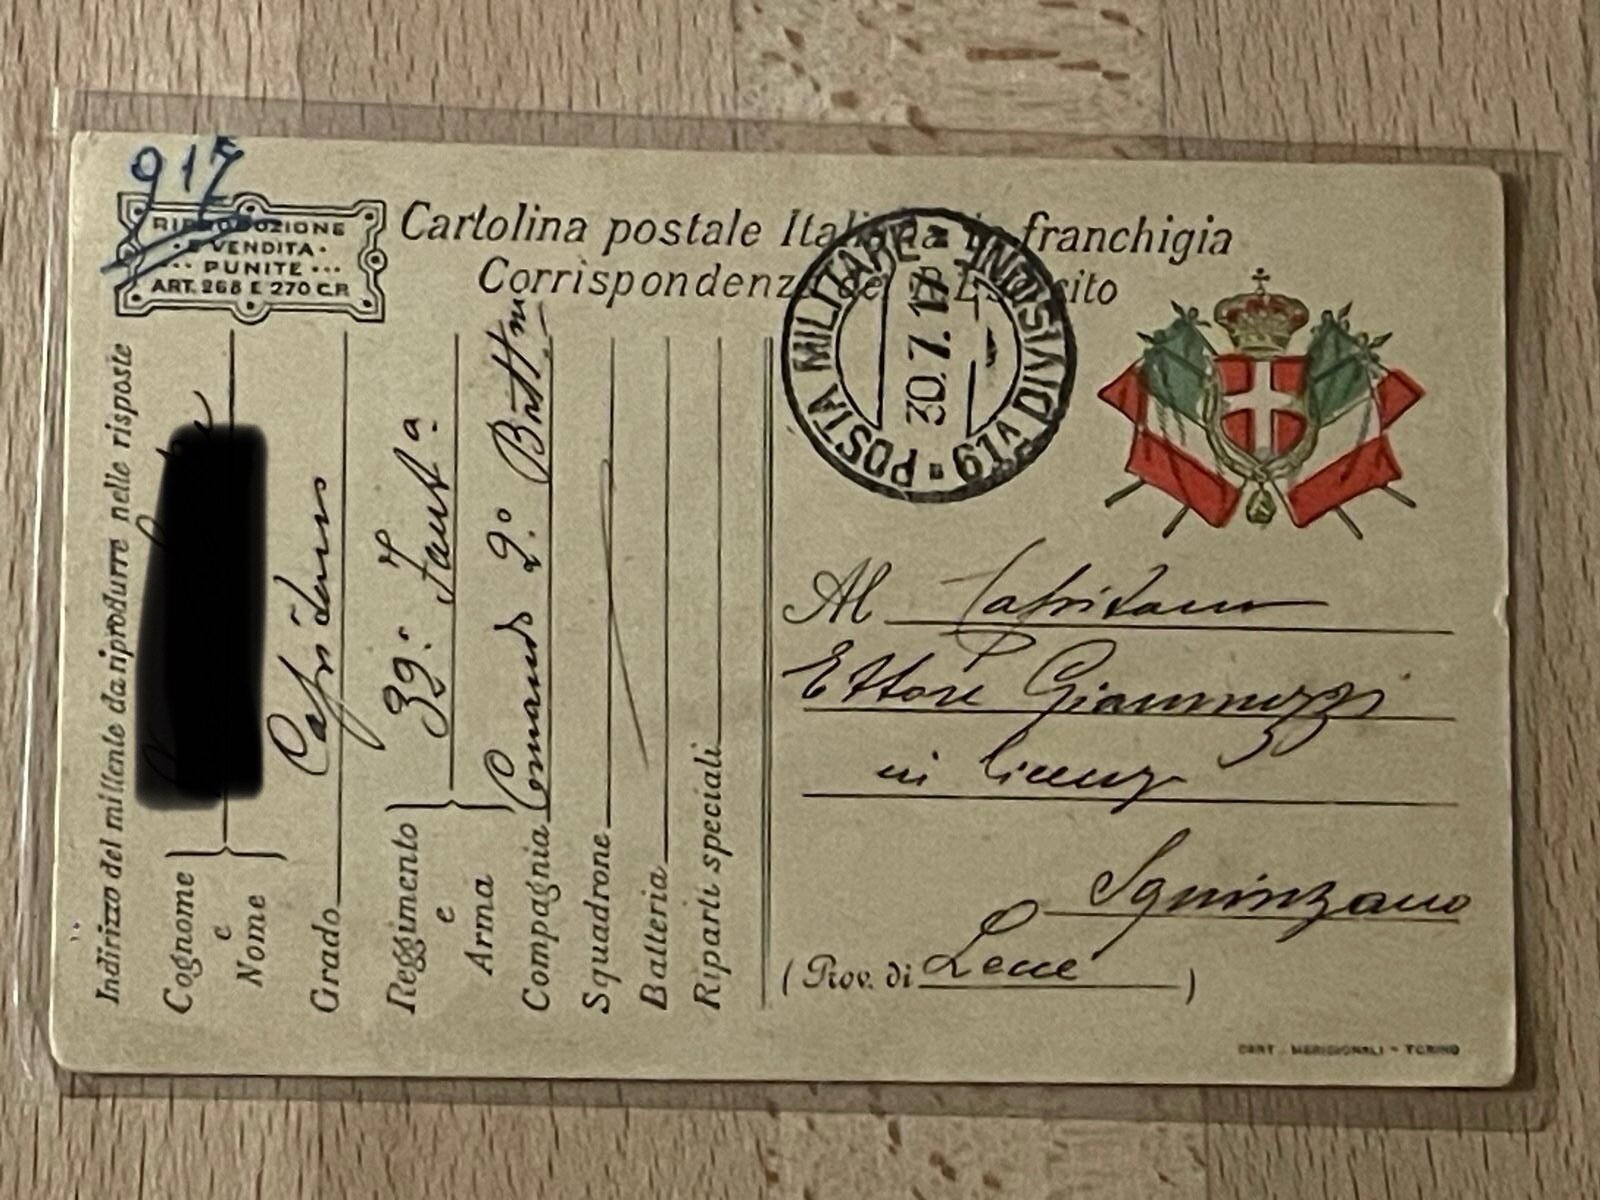 917
RIPRODUZIONE
E VENDITA
PUNITE
ART. 268 E 270 C.P.
Cartolina postale Italiana in franchigia
Corrispondenza del R. Esercito
POSTA MILITARE
61A DIVISIONE
30.7.17
Indirizzo del mittente da riprodurre nelle risposte
Cognome
e
Nome
Grado Capitano
Reggimento
e
Arma
39° Fant.a
Compagnia Comando 2°
Squadrone
Batteria
Riparti speciali
Al Capitano
Ettore Giannuzzi
in licenza
Squinzano
(Prov. di Lecce)
CART. MERIDIONALI - TORINO